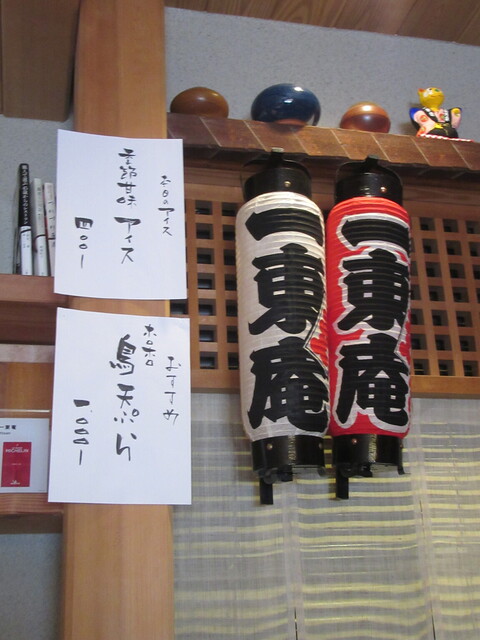 本日のアイス
季節甘味 アイス
四〇〇、一
おすすめ
ホロホロ
鳥天ぷら
一、〇〇〇、一
一東庵
一東庵
MICHELIN